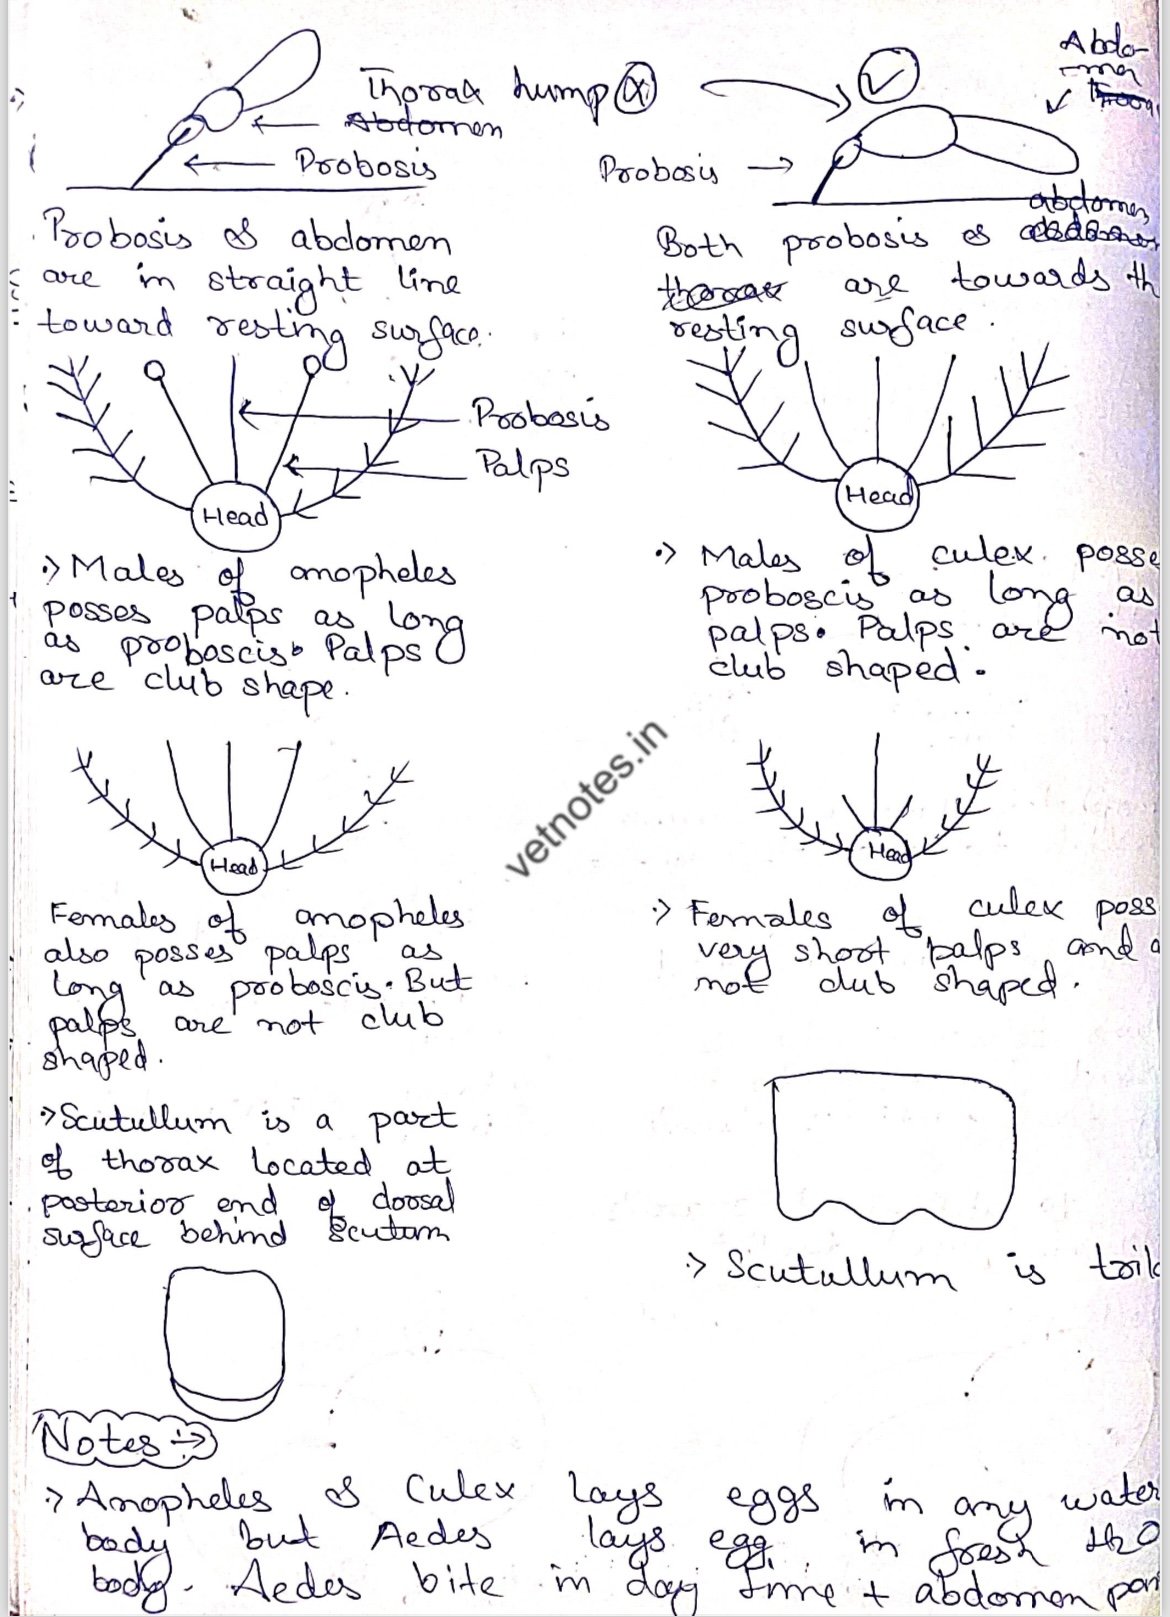 Thorax hump x
Abdomen
Probosis
Probosis & abdomen
are in straight line
toward resting surface.
Probosis
Palps
Head
:> Males of anopheles
posses palps as long
as proboscis. Palps
are club shape.
Head
Females of anopheles
also posses palps as
long as proboscis. But
palps are not club
shaped.
:> Scutullum is a part
of thorax located at
posterior end of dorsal
surface behind Scutum
Abdo-
men
Probosis
abdomen
Both probosis &
thorax are towards th
resting surface.
Head
:> Males of culex posse
proboscis as long as
palps. Palps are not
club shaped.
Head
:> Females of culex poss
very short palps and a
not club shaped.
:> Scutullum is tril
vetnotes.in
Notes :->
:> Anopheles & Culex lays eggs in any water
body but Aedes lays egg in fresh H2O
body. Aedes bite in day time + abdomen